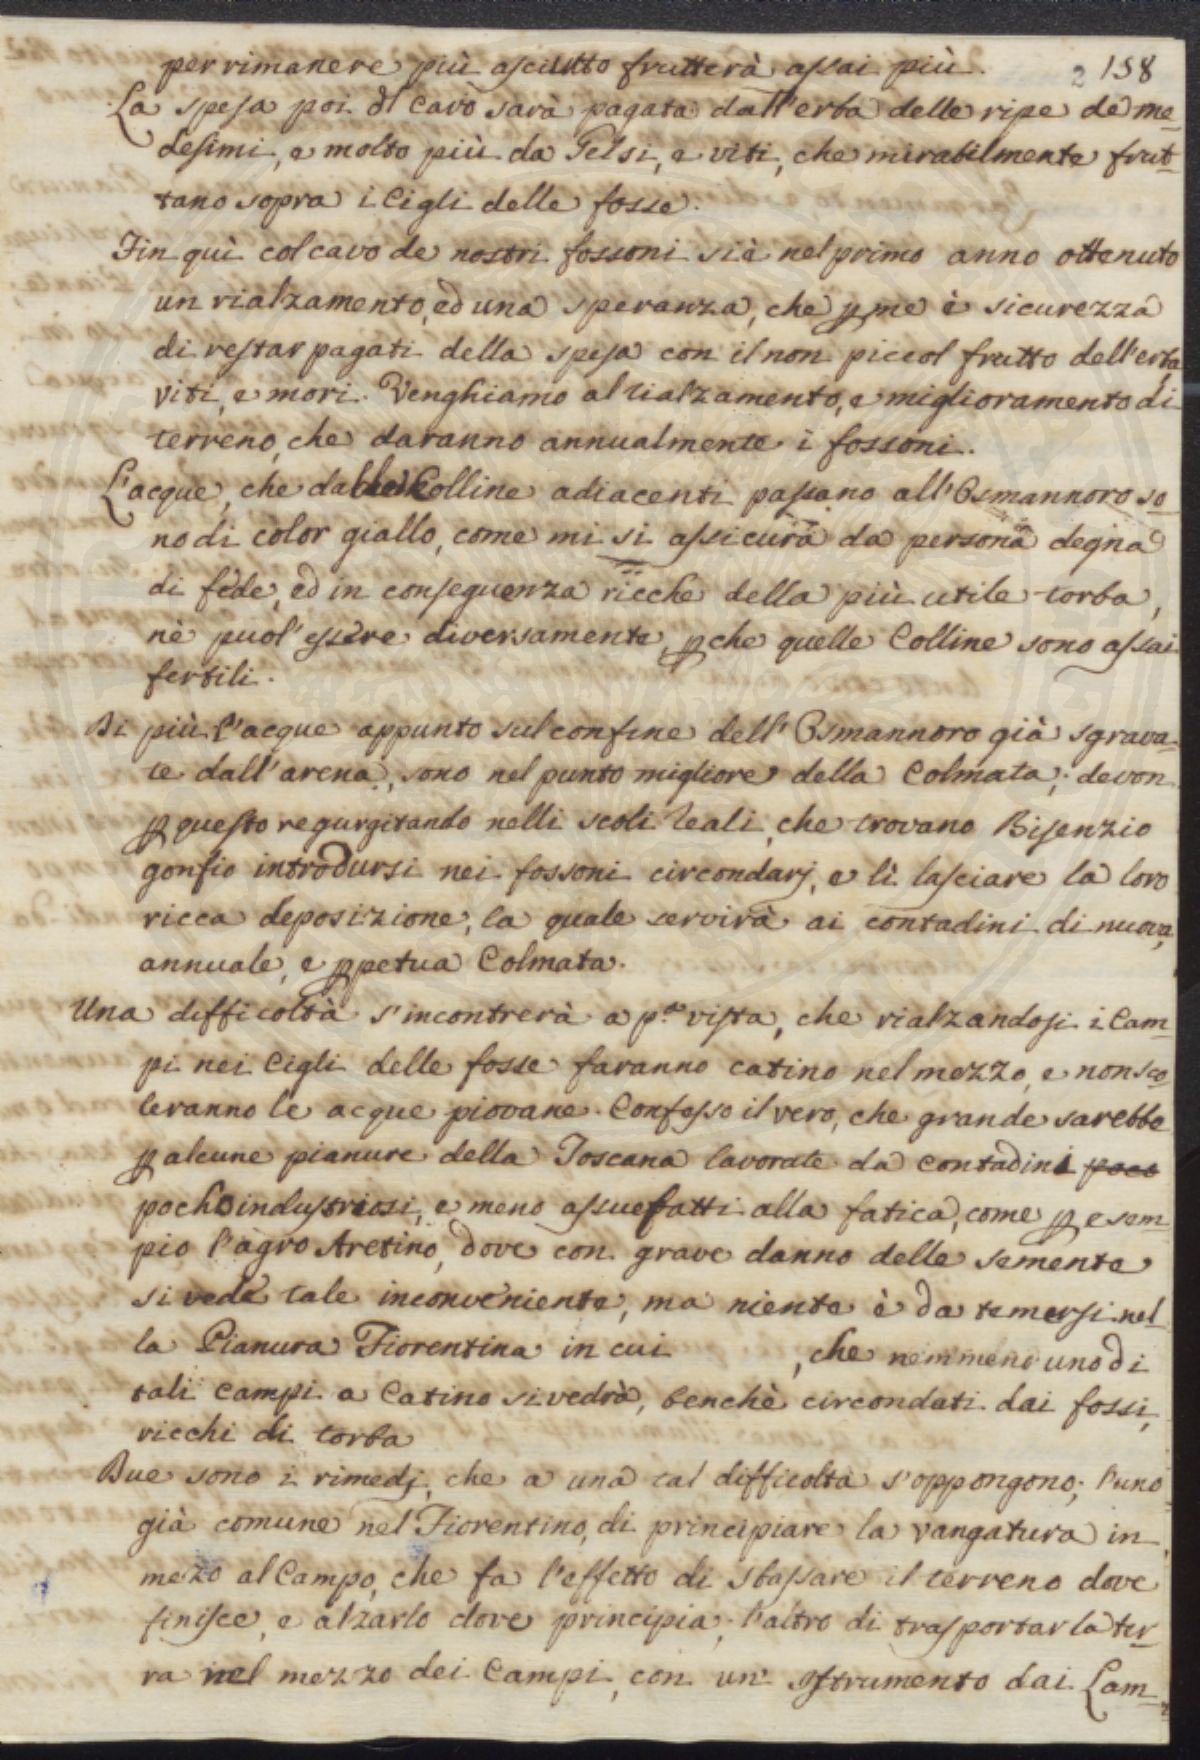 per rimanere più asciutto frutterà assai più. 2 158
La spesa poi di cavo sarà pagata dall'erba delle ripe de me-
desimi, e molto più da Gelsi, e viti, che mirabilmente frut-
tano sopra i Cigli delle fosse.
Fin quì col cavo de nostri fossoni si è nel primo anno ottenuto
un rialzamento, ed una speranza, che p me è sicurezza
di restar pagati della spesa con il non piccol frutto dell'erba,
viti, e mori. Venghiamo al rialzamento, e miglioramento di
terreno, che daranno annualmente i fossoni.
L'acque, che dalle Colline adiacenti passano all'Osmannoro so-
no di color giallo, come mi si assicura da persona degna
di fede, ed in conseguenza ricche della più utile torba,
nè puol'essere diversamente, pche quelle Colline sono assai
fertili.
Di più l'acque appunto sul confine dell'Osmannoro già sgrava-
te dall'arena, sono nel punto migliore della Colmata; devon
p questo regurgitando nelli scoli reali, che trovano Bisenzio
gonfio introdursi nei fossoni circondarj, e lì lasciare la loro
ricca deposizione, la quale servirà ai contadini di nuova,
annuale, e ppetua Colmata.
Una difficoltà s'incontrerà a p.a vista, che rialzandosi i Cam-
pi nei Cigli delle fosse faranno catino nel mezzo, e non sco-
leranno le acque piovane. Confesso il vero, che grande sarebbe
p alcune pianure della Toscana lavorate da contadini poco
pocho industriosi, e meno assuefatti alla fatica, come p esem-
pio l'agro Aretino, dove con grave danno delle semente
si vede tale inconveniente, ma niente è da temersi nel-
la Pianura Fiorentina in cui , che nemmeno uno di
tali campi a Catino si vedrà, benchè circondati dai fossi,
ricchi di torba
Due sono i rimedj, che a una tal difficoltà s'oppongono; l'uno
già comune nel Fiorentino, di principiare la vangatura in
mezo al Campo, che fa l'effetto di sbassare il terreno dove
finisce, e alzarlo dove principia; l'altro di trasportar la ter-
ra nel mezzo dei Campi, con un' Istrumento dai Lom-